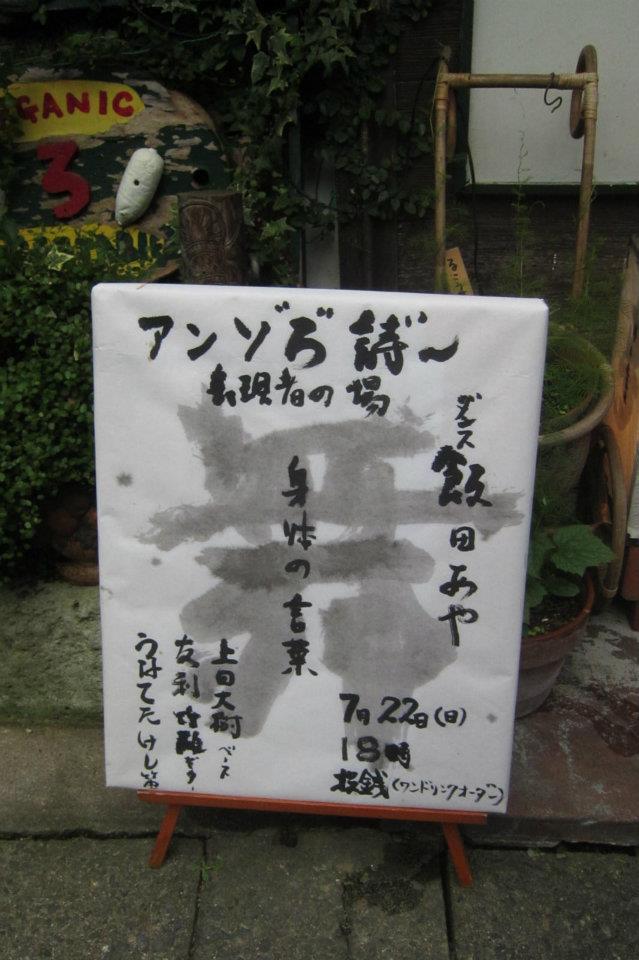 GANIC
3
アンゾぢ詩〜
表現者の場
ダンス 飯田あや
身体の言葉
上田大樹 ベース
友利 ギター
うねてたけし 筆
7月22日(日)
18時
投銭(ワンドリンクオーダー)